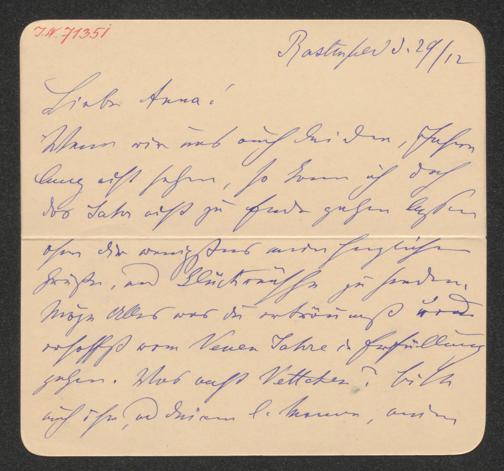 I.N. 71351
d. 29/12
Liebe Anna!
Wenn wir uns auch bei den,
lang nicht sehen, so kann ich doch
das Jahr nicht zu Ende gehen lassen
ohne dir wenigstens meine herzlichen
Grüße, und Glückwünsche zu senden.
Möge Alles was du erträumst und
erhoffst vom Neuen Jahre in Erfüllung
gehen. Was macht Bitte
auch ihr, und deinem l. Manne, meine